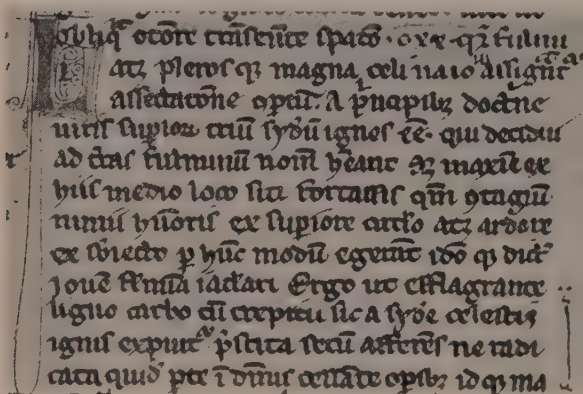 obliq̄ otōre trāseūte spatō · qr̄ fulmī
atq; pleros q; magna celi
assectatōne optū. A p̄ncipib; doctͥne
uiris supiorū triū syderū ignes ēē. qui decidui
ad t̄ras fulminū nom̄ h̄eant & maxīe ex
hiis medio loco siti fortassis qm̄ ↄtagiū
nimii hūoris ex supiore circlo atq; ardore
ex sb̄iecto p̱ hūc modū egerūt idō q; dict̄
iouē flmīa iaclari Ergo ut efflagrante
ligno carbo cū crepitu sic a syd̄e celestis
ignis expuit᷑ p̄scita secū afferēs ne radi
cata quidē pte ī diuīs cessāte opib; id q; ma